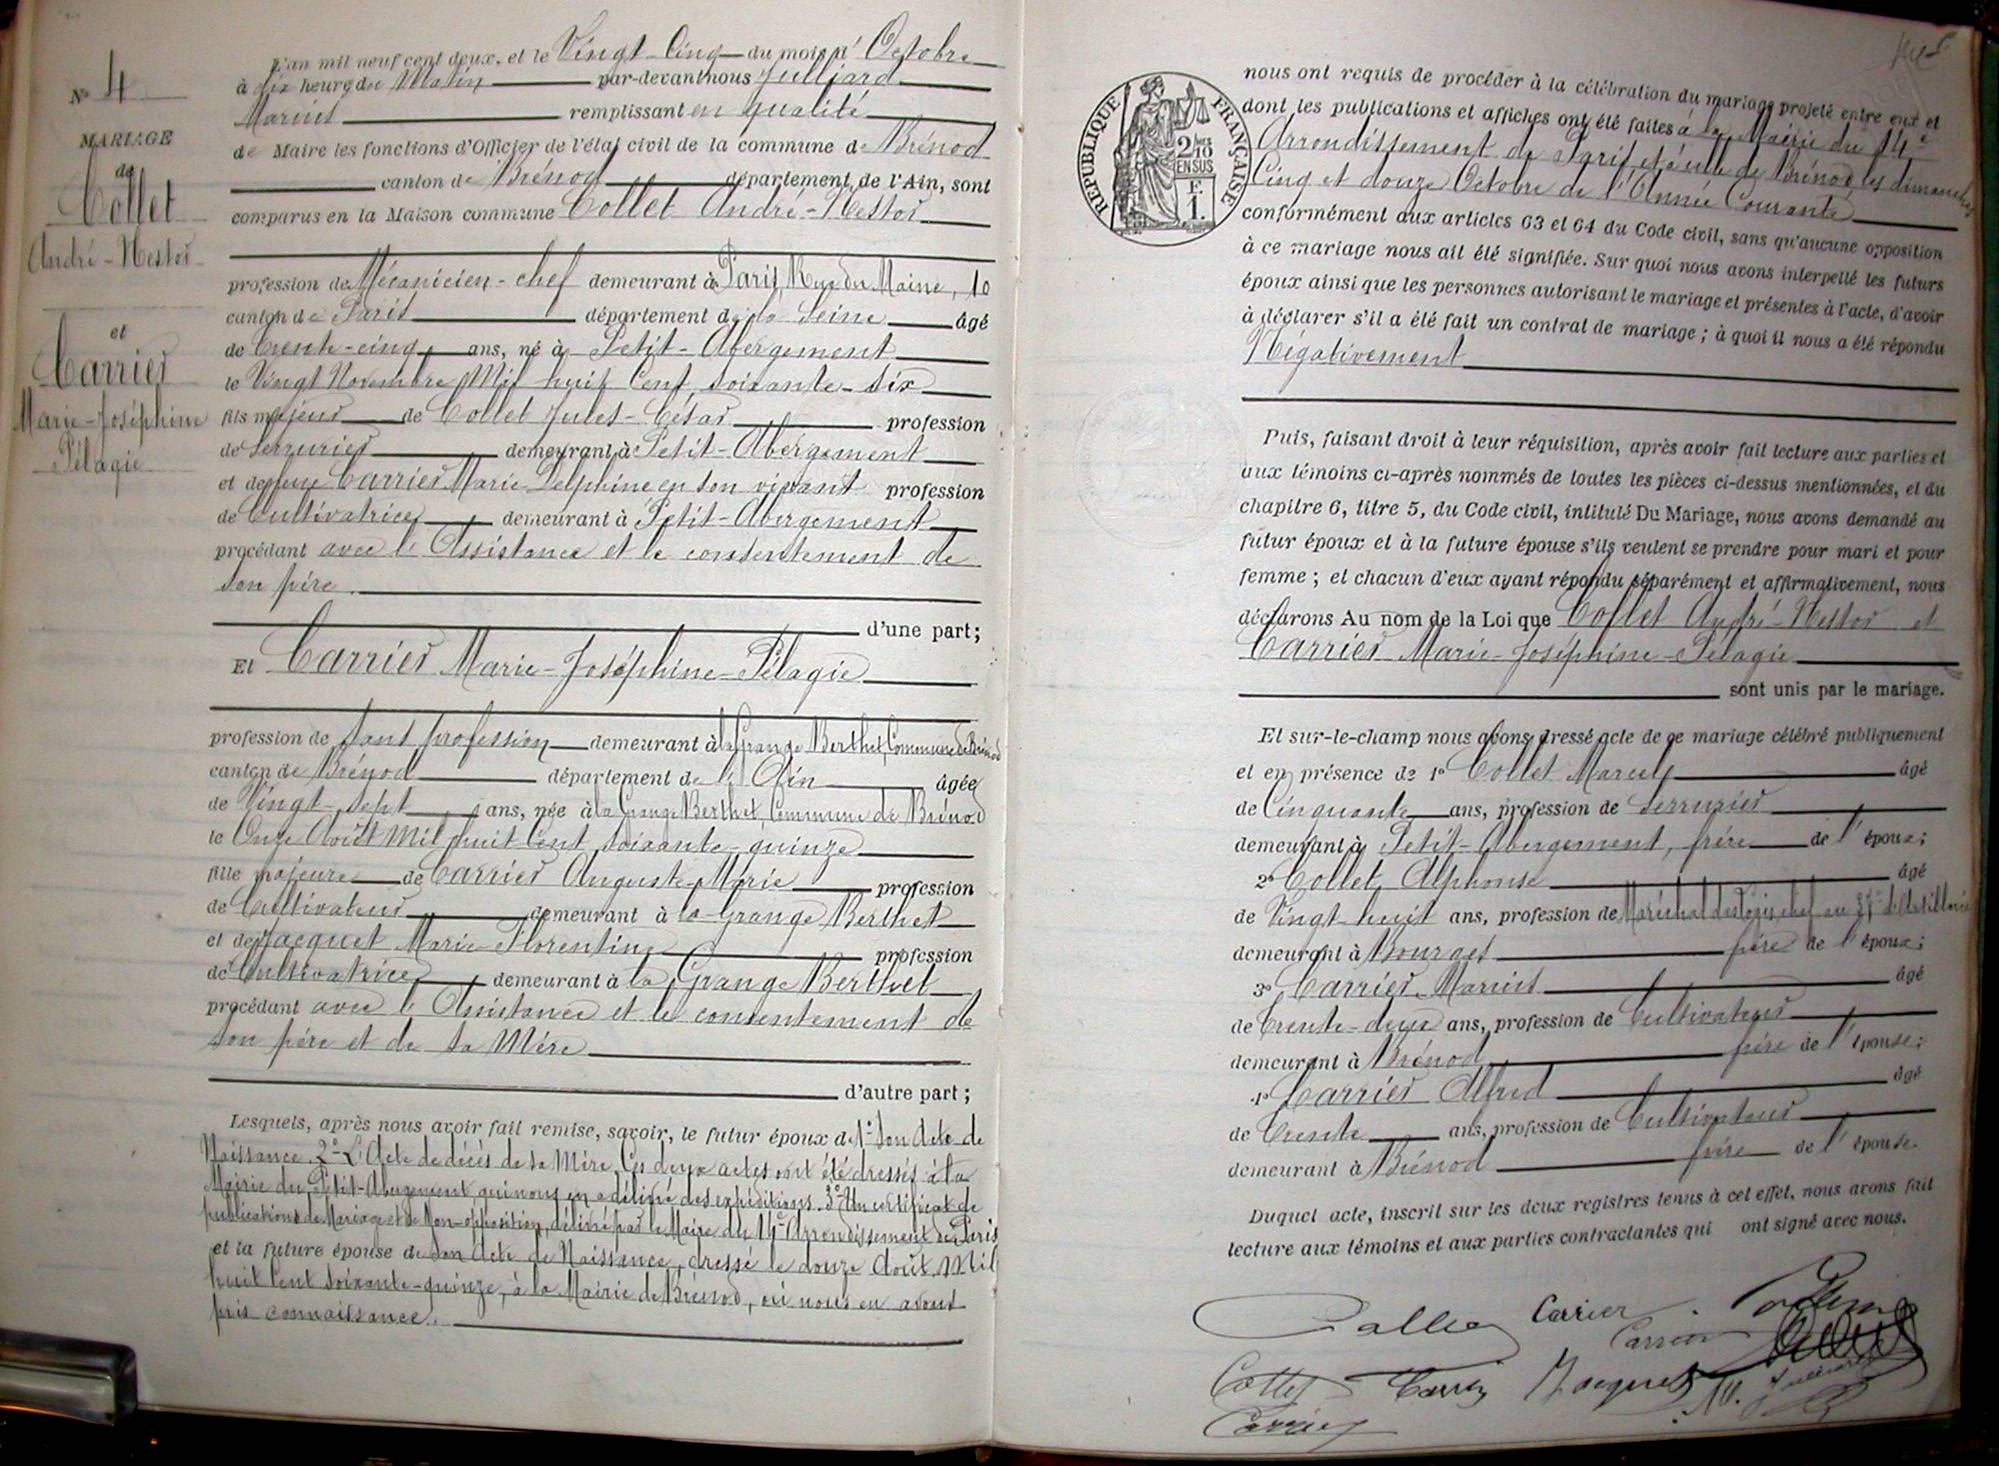 N° 4
MARIAGE
de
Collet
André-Nestor
et
Carrier
Marie-Joséphine
Pélagie
L'an mil neuf cent deux, et le Vingt-Cinq du mois d'Octobre
à dix heures du Matin par-devant nous Julliard
Marius remplissant en qualité
de Maire les fonctions d'Officier de l'état civil de la commune de Brénod
canton de Brénod département de l'Ain, sont
comparus en la Maison commune Collet André-Nestor
profession de Mécanicien-chef demeurant à Paris, Rue du Maine, 10
canton de Paris département de la Seine âgé
de trente-cinq ans, né à Petit-Abergement
le Vingt Novembre Mil huit Cent soixante-six
fils majeur de Collet Jules-César profession
de Serrurier demeurant à Petit-Abergement
et de feue Carrier Marie Delphine en son vivant profession
de Cultivatrice demeurant à Petit-Abergement
procédant avec l'Assistance et le consentement de
son père.
d'une part;
Et Carrier Marie-Joséphine-Pélagie
profession de sans profession demeurant à la Grange Berthet, Commune de Brénod
canton de Brénod département de l'Ain âgée
de Vingt-sept ans, née à la Grange Berthet, Commune de Brénod
le Onze Août Mil huit Cent soixante-quinze
fille majeure de Carrier Auguste-Marie profession
de Cultivateur demeurant à la Grange Berthet
et de Jacquet Marie-Florentine profession
de Cultivatrice demeurant à la Grange Berthet
procédant avec l'Assistance et le consentement de
son père et de sa Mère
d'autre part;
Lesquels, après nous avoir fait remise, savoir, le futur époux de 1° Son Acte de
Naissance. 2° L'Acte de décès de sa Mère, Ces deux actes ont été dressés à la
Mairie du Petit-Abergement qui nous en a délivré des expéditions. 3° Un certificat de
publications de Mariage et de Non-opposition, délivré par le Maire du 14e Arrondissement de Paris
et la future épouse de son Acte de Naissance, dressé le douze Août Mil
huit Cent soixante-quinze, à la Mairie de Brénod, où nous en avons
pris connaissance.
RÉPUBLIQUE FRANÇAISE
2/10
EN SUS
F.
1.
nous ont requis de procéder à la célébration du mariage projeté entre eux et
dont les publications et affiches ont été faites à la Mairie du 14e
Arrondissement de Paris et à celle de Brénod les dimanches
Cinq et douze Octobre de l'Année Courante
conformément aux articles 63 et 64 du Code civil, sans qu'aucune opposition
à ce mariage nous ait été signifiée. Sur quoi nous avons interpellé les futurs
époux ainsi que les personnes autorisant le mariage et présentes à l'acte, d'avoir
à déclarer s'il a été fait un contrat de mariage; à quoi il nous a été répondu
Négativement
Puis, faisant droit à leur réquisition, après avoir fait lecture aux parties et
aux témoins ci-après nommés de toutes les pièces ci-dessus mentionnées, et du
chapitre 6, titre 5, du Code civil, intitulé Du Mariage, nous avons demandé au
futur époux et à la future épouse s'ils veulent se prendre pour mari et pour
femme; et chacun d'eux ayant répondu séparément et affirmativement, nous
déclarons Au nom de la Loi que Collet André-Nestor et
Carrier Marie-Joséphine-Pélagie
sont unis par le mariage.
Et sur-le-champ nous avons dressé acte de ce mariage célébré publiquement
et en présence de 1° Collet Marcel âgé
de Cinquante ans, profession de Serrurier
demeurant à Petit-Abergement, frère de l'époux;
2° Collet Alphonse âgé
de Vingt-huit ans, profession de Maréchal des logis chef au 37e d'Artillerie
demeurant à Bourges frère de l'époux;
3° Carrier Marius âgé
de trente-deux ans, profession de Cultivateur
demeurant à Brénod frère de l'épouse;
4° Carrier Alfred âgé
de trente ans, profession de Cultivateur
demeurant à Brénod frère de l'épouse.
Duquel acte, inscrit sur les deux registres tenus à cet effet, nous avons fait
lecture aux témoins et aux parties contractantes qui ont signé avec nous.
Collet Carrier
Carrier
Collet Carrier Jacquet M. Julliard
Carrier